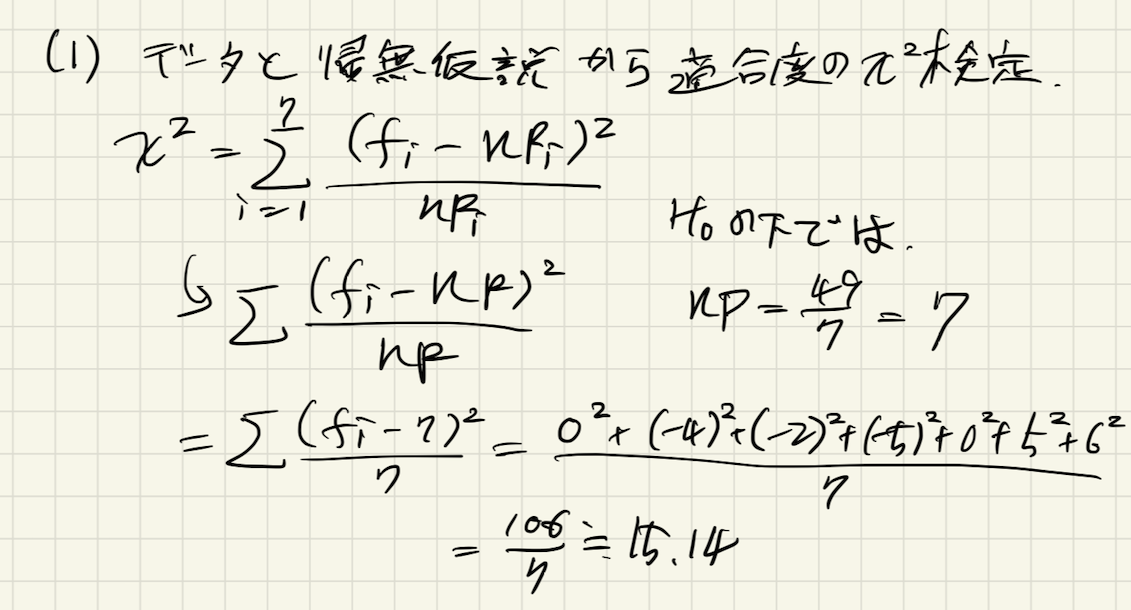 (1) データと帰無仮説から適合度のχ²検定.
χ² = Σ_{i=1}^{7} (f_i - nP_i)² / nP_i
H₀の下では.
↳ Σ (f_i - nP)² / nP
nP = 49/7 = 7
= Σ (f_i - 7)² / 7 = (0² + (-4)² + (-2)² + (-5)² + 0² + 5² + 6²) / 7
= 106/7 ≒ 15.14